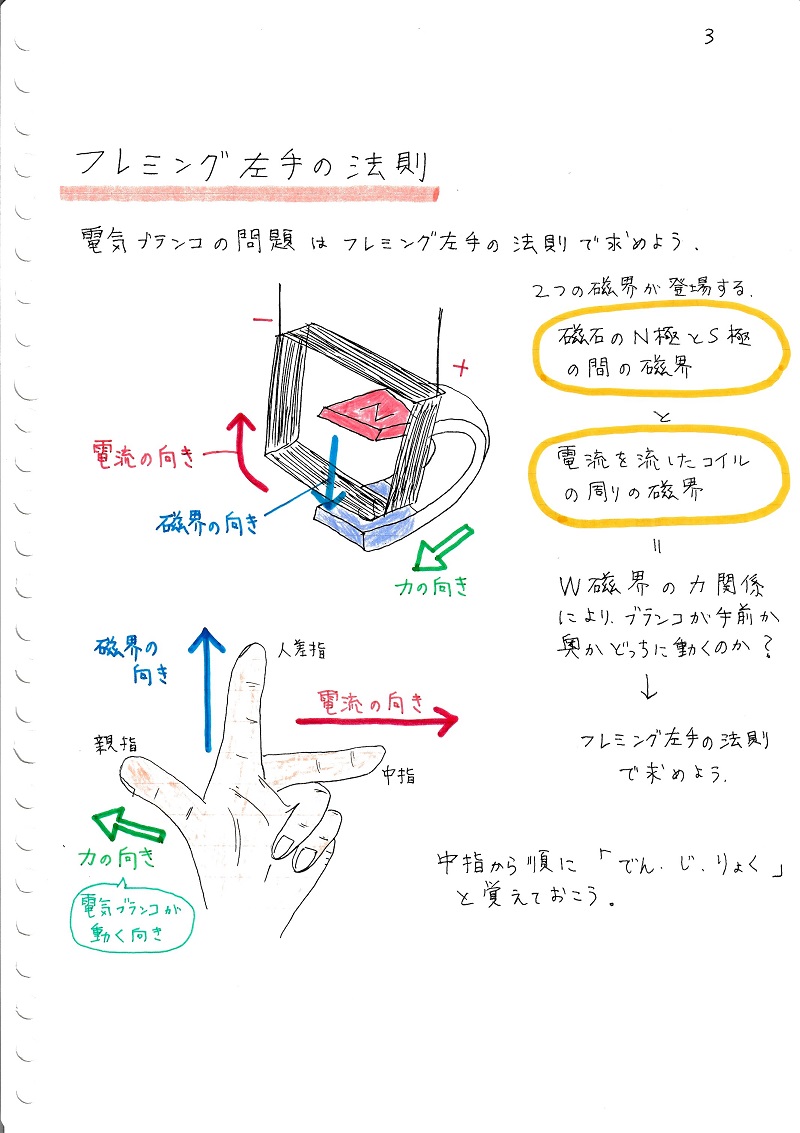 3
フレミング左手の法則
電気ブランコの問題はフレミング左手の法則で求めよう.
2つの磁界が登場する.
磁石のN極とS極
の間の磁界
と
電流を流したコイル
の周りの磁界
＝
W磁界の力関係
により、ブランコが手前か
奥かどっちに動くのか?
↓
フレミング左手の法則
で求めよう.
−
+
N
電流の向き
磁界の向き
力の向き
磁界の
向き
人差指
電流の向き
親指
中指
力の向き
電気ブランコが
動く向き
中指から順に「でん.じ.りょく」
と覚えておこう。